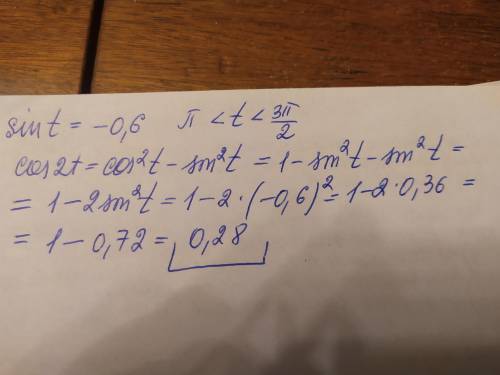 sin t = -0,6   π < t < 3π/2
cos2t = cos²t - sin²t = 1 - sin²t - sin²t =
= 1 - 2sin²t = 1 - 2·(-0,6)² = 1 - 2·0,36 =
= 1 - 0,72 = 0,28